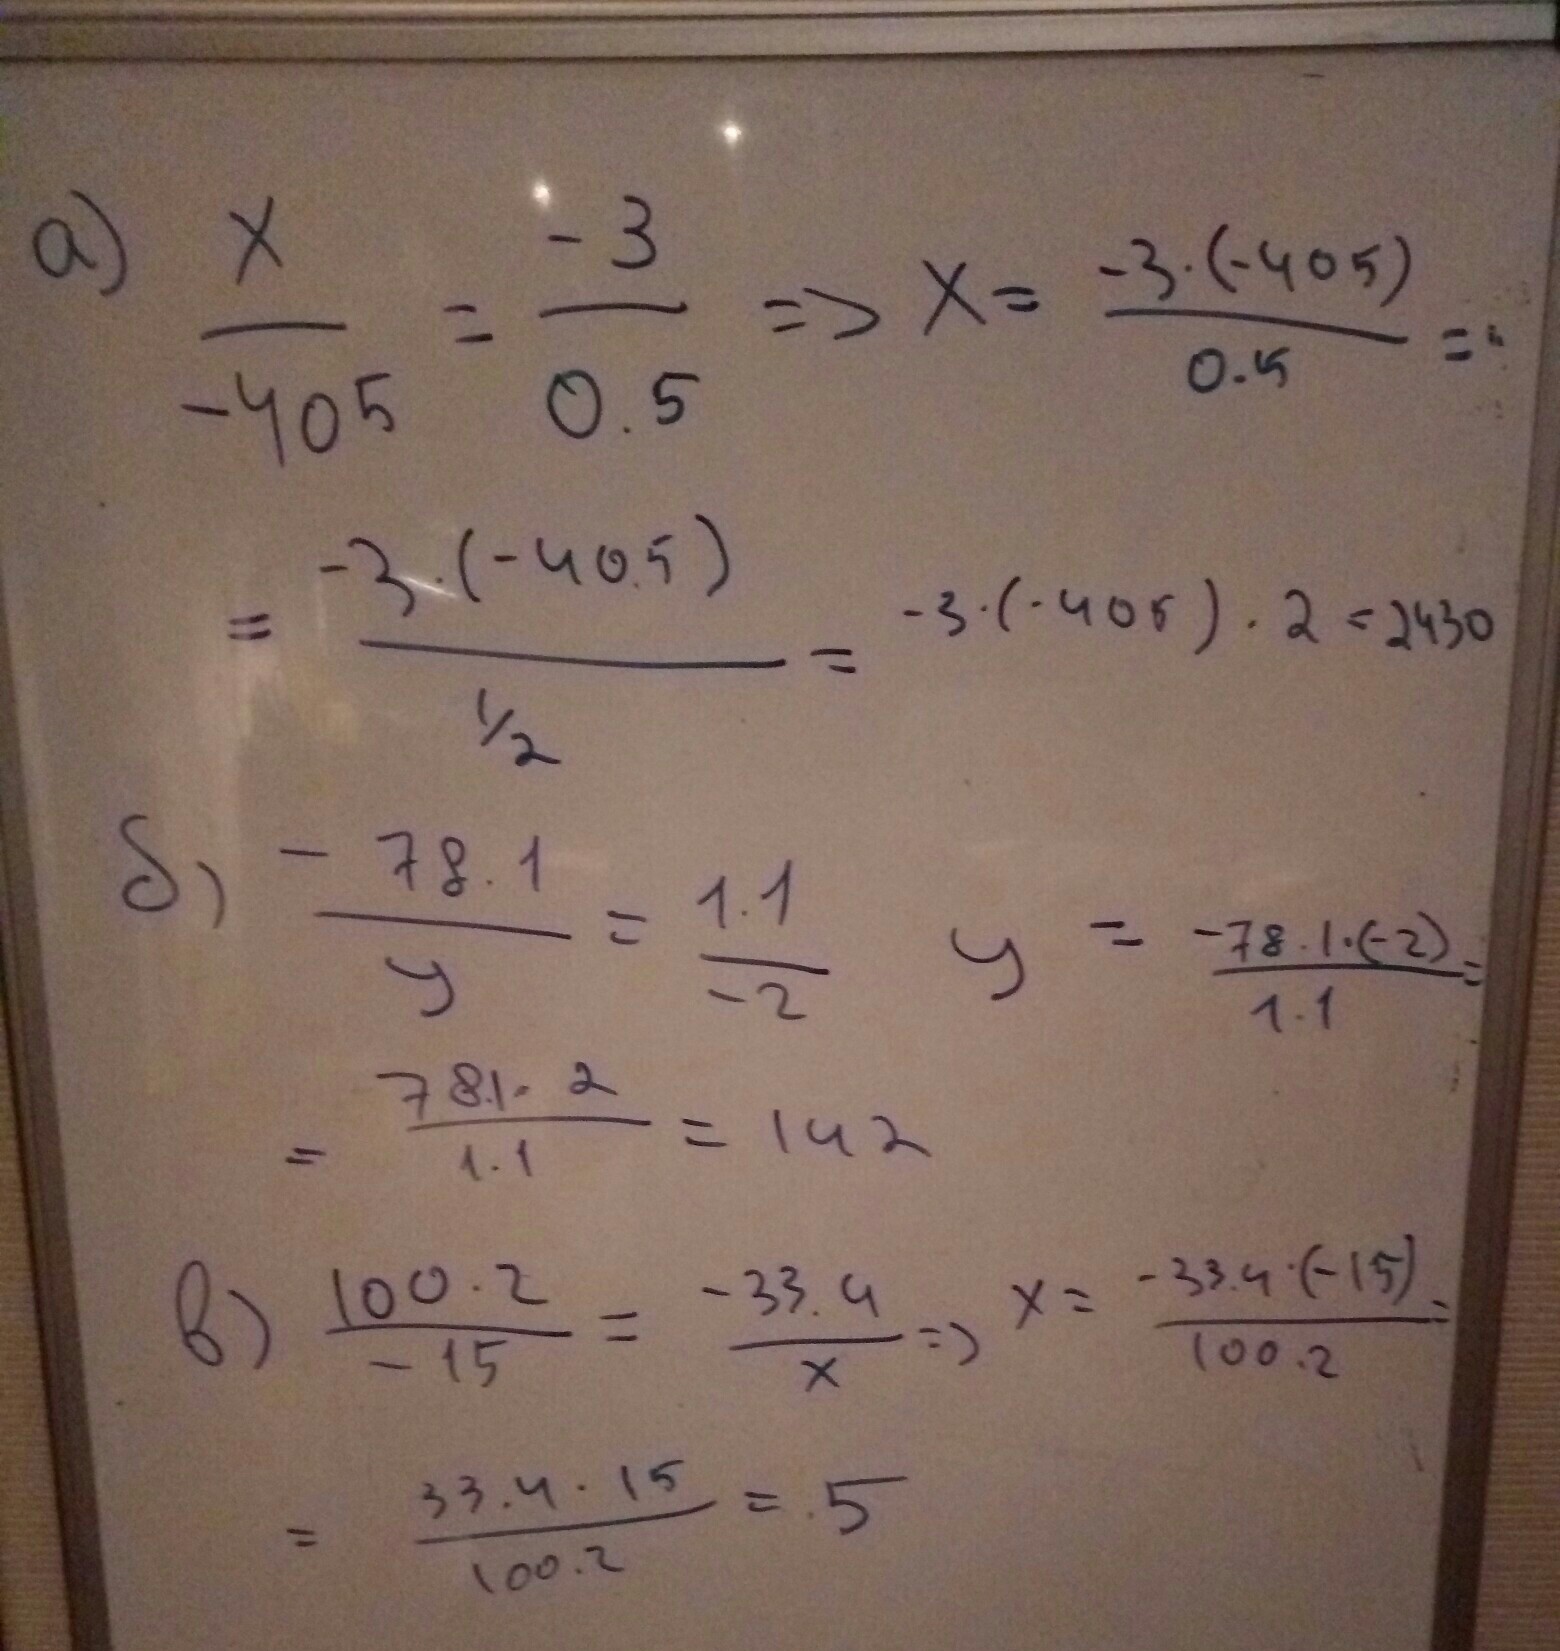 а) x/-405 = -3/0.5 => x = -3·(-405)/0.5 =
= -3·(-405)/1/2 = -3·(-405)·2 = 2430
б) -78.1/y = 1.1/-2 y = -78.1·(-2)/1.1 =
= 78.1·2/1.1 = 142
в) 100.2/-15 = -33.4/x => x = -33.4·(-15)/100.2 =
= 33.4·15/100.2 = 5